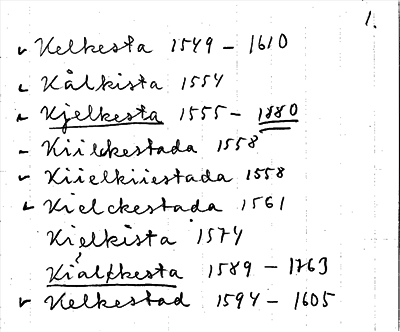 1.
Kelkesta 1549 – 1610
Kålkista 1554
Kjelkesta 1555 – 1880
Kiilkkestada 1558
Kiielkiiestada 1558
Kielckestada 1561
Kielkista 1574
Kialkkesta 1589 – 1763
Kelkestad 1594 – 1605